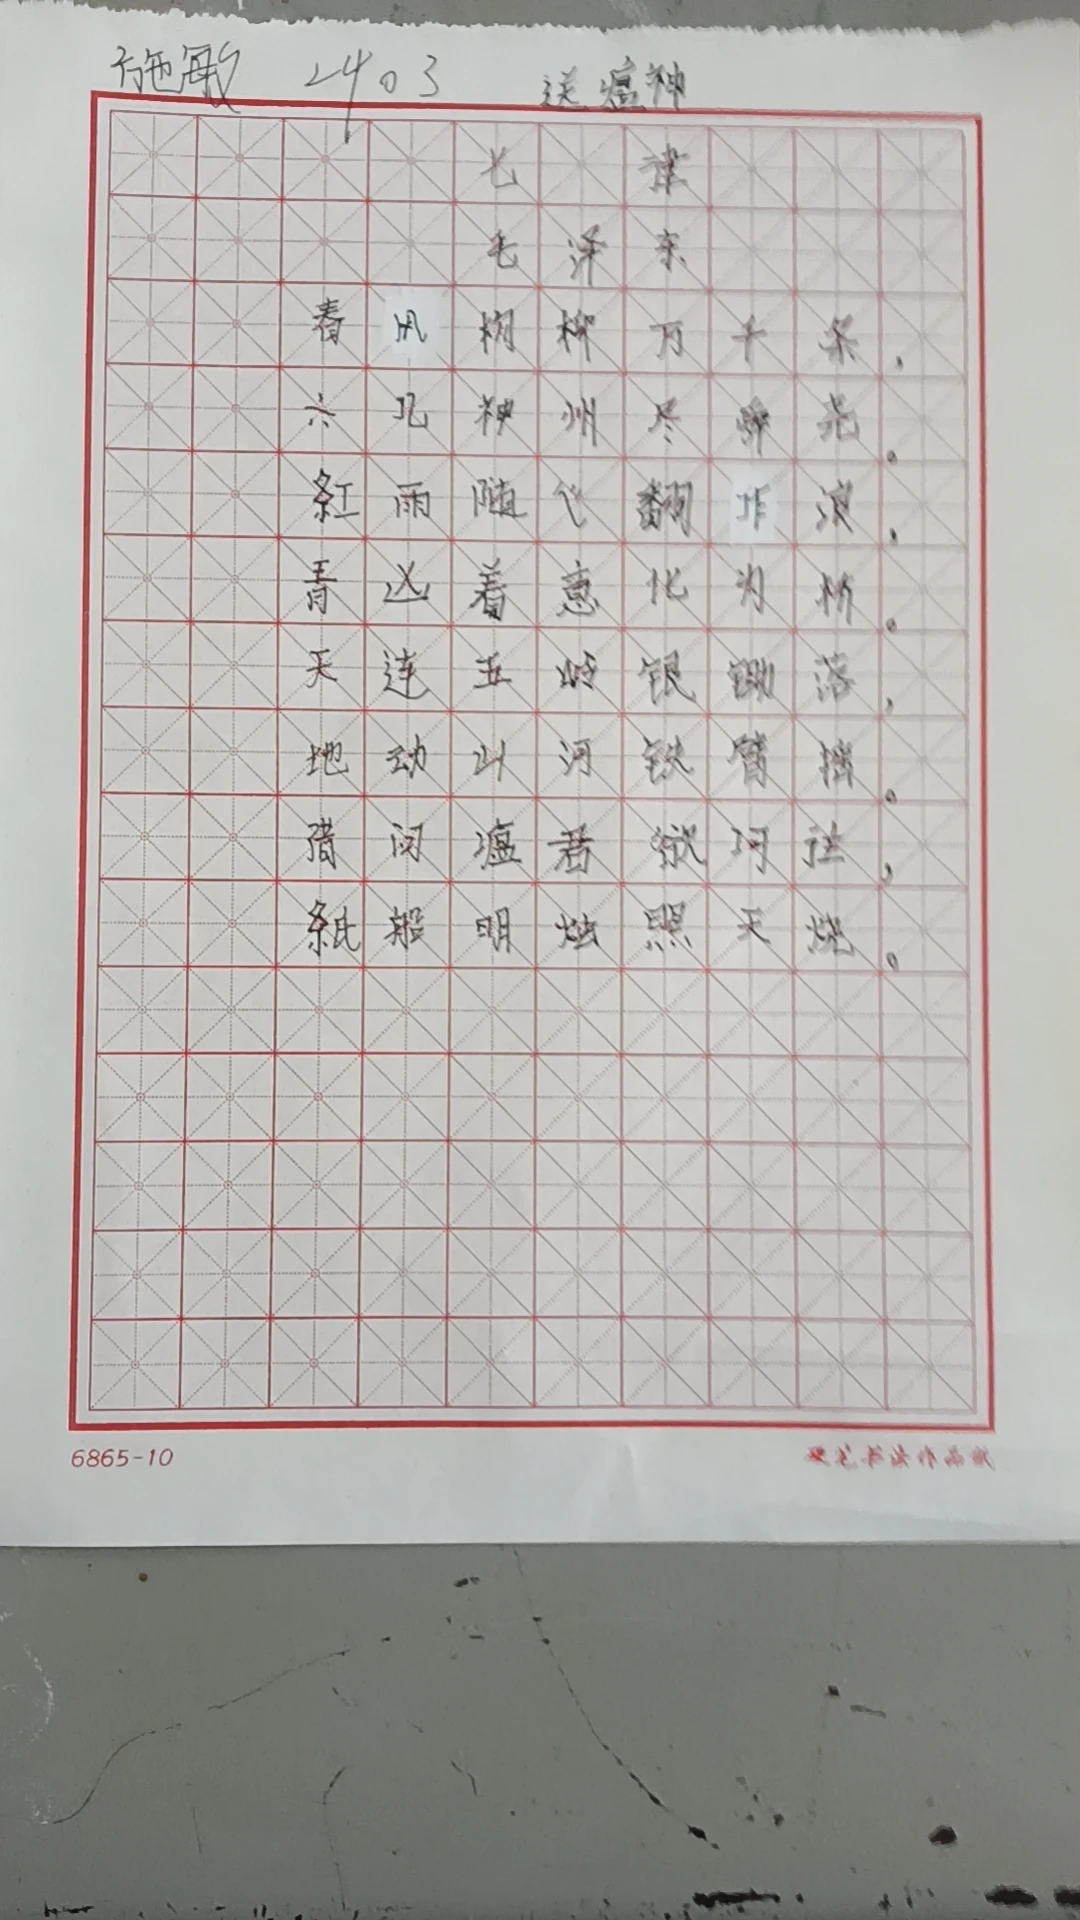 施敏 2403 送瘟神
七律
毛泽东
春风杨柳万千条,
六亿神州尽舜尧。
紅雨随心翻作浪,
青山着意化为桥。
天连五岭银锄落,
地动山河铁臂摇。
借问瘟君欲何往,
紙船明烛照天烧。
6865-10 硬笔书法作品纸